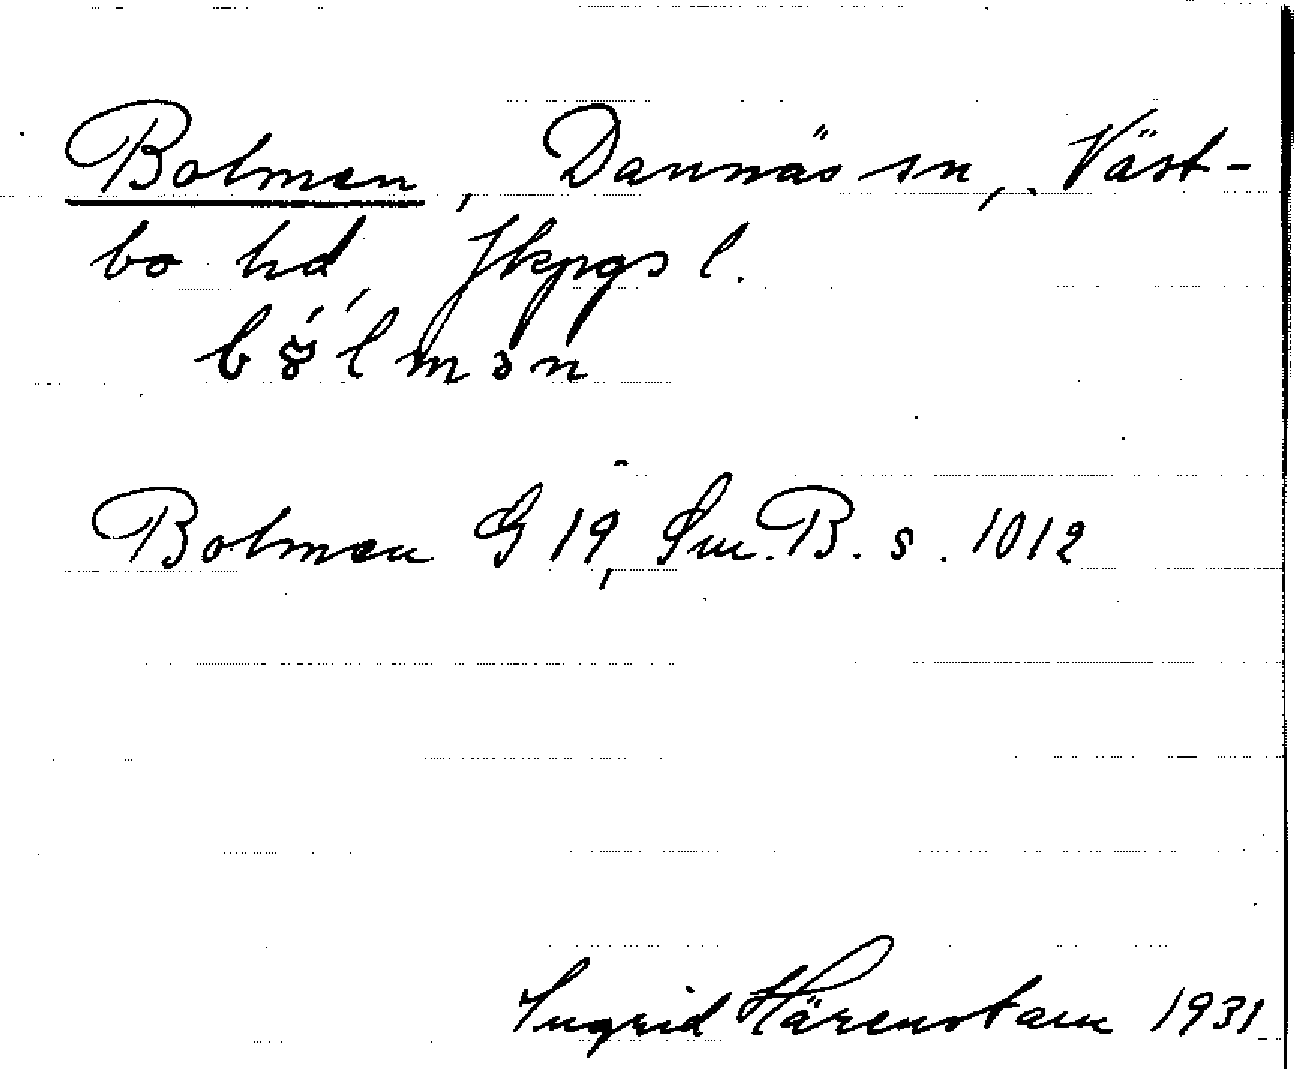 Bolmen, Dannäs sn, Väst-
bo hd, Jkpgs l.
Bolmen G 19, Sm. B. s. 1012
Ingrid Härenstam 1931